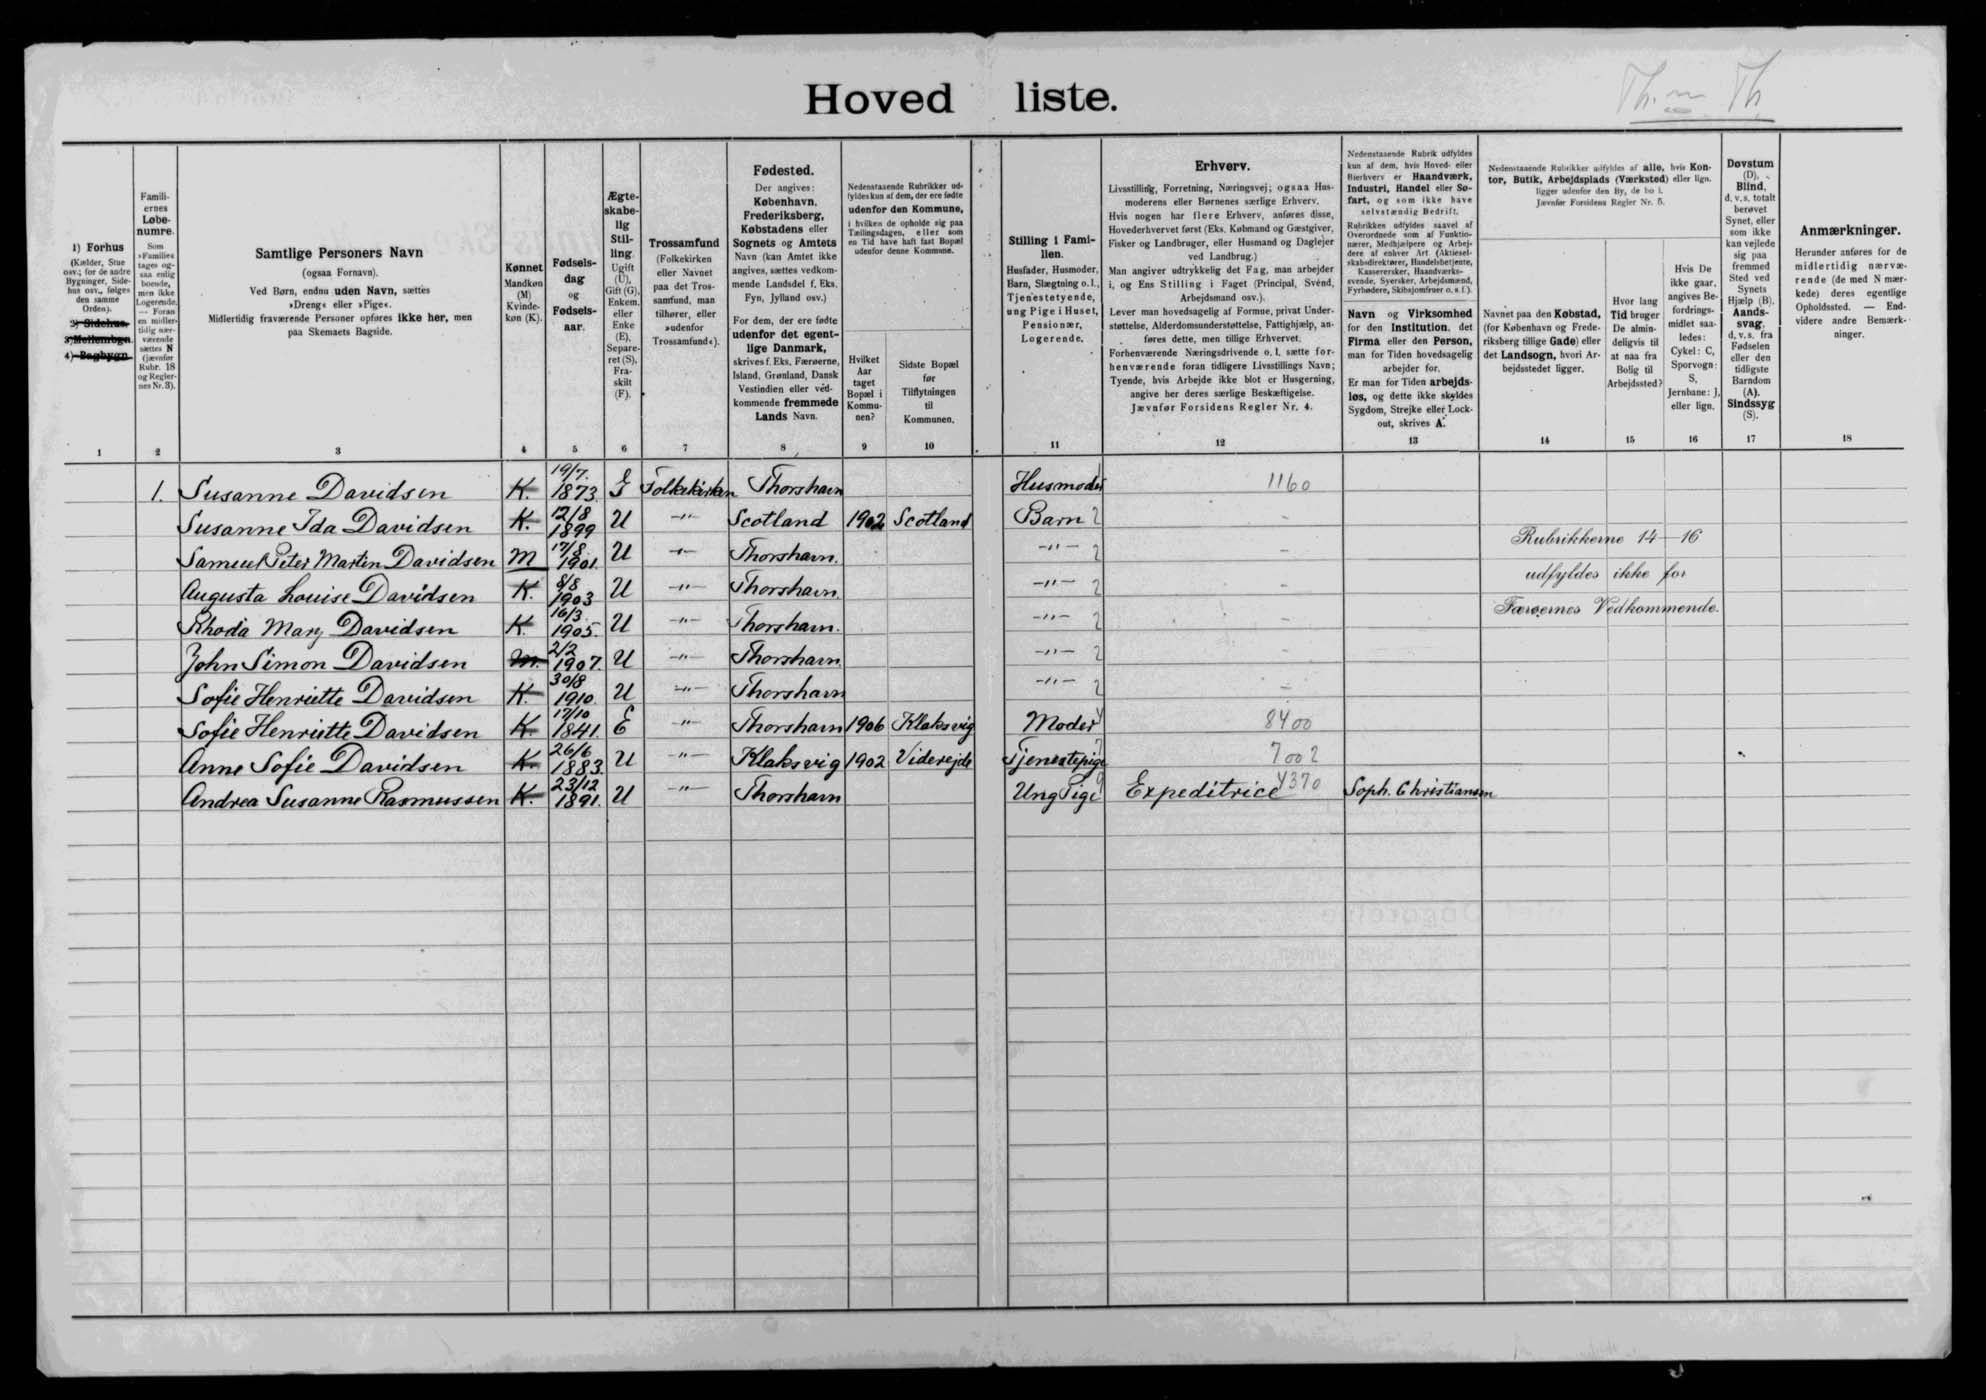 Hoved liste.
Th. m Th
1) Forhus
(Kælder, Stue
osv.; for de andre
Bygninger, Side-
hus osv., følges
den samme
Orden).
2) Sidehus.
3) Mellembgn.
4) Bagbygn.
1
Famili-
ernes
Løbe-
numre.
Som
»Familie«
tages og-
saa enlig
boende,
men ikke
Logerende.
— Foran
en midler-
tidig nær-
værende
sættes N
(jævnfør
Rubr. 18
og Regler-
nes Nr. 3).
2
Samtlige Personers Navn
(ogsaa Fornavn).
Ved Børn, endnu uden Navn, sættes
»Dreng« eller »Pige«.
Midlertidig fraværende Personer opføres ikke her, men
paa Skemaets Bagside.
3
Kønnet
Mandkøn
(M)
Kvinde-
køn (K).
4
Fødsels-
dag
og
Fødsels-
aar.
5
Ægte-
skabe-
lig
Stil-
ling.
Ugift
(U),
Gift (G),
Enkem.
eller
Enke
(E),
Separe-
ret (S),
Fra-
skilt
(F).
6
Trossamfund
(Folkekirken
eller Navnet
paa det Tros-
samfund, man
tilhører, eller
»udenfor
Trossamfund«).
7
Fødested.
Der angives:
København,
Frederiksberg,
Købstadens eller
Sognets og Amtets
Navn (kan Amtet ikke
angives, sættes vedkom-
mende Landsdel f. Eks.
Fyn, Jylland osv.)
For dem, der ere fødte
udenfor det egent-
lige Danmark,
skrives f. Eks. Færøerne,
Island, Grønland, Dansk
Vestindien eller ved-
kommende fremmede
Lands Navn.
8
Nedenstaaende Rubrikker ud-
fyldes kun af dem, der ere fødte
udenfor den Kommune,
i hvilken de opholde sig paa
Tællingsdagen, eller som
en Tid have haft fast Bopæl
udenfor denne Kommune.
Hvilket
Aar
taget
Bopæl i
Kommu-
nen?
9
Sidste Bopæl
før
Tilflytningen
til
Kommunen.
10
Stilling i Fami-
lien.
Husfader, Husmoder,
Barn, Slægtning o. l.,
Tjenestetyende,
ung Pige i Huset,
Pensionær,
Logerende.
11
Erhverv.
Livsstilling, Forretning, Næringsvej; ogsaa Hus-
moderens eller Børnenes særlige Erhverv.
Hvis nogen har flere Erhverv, anføres disse,
Hovederhvervet først (Eks. Købmand og Gæstgiver,
Fisker og Landbruger, eller Husmand og Daglejer
ved Landbrug.)
Man angiver udtrykkelig det Fag, man arbejder
i, og Ens Stilling i Faget (Principal, Svend,
Arbejdsmand osv.).
Lever man hovedsagelig af Formue, privat Under-
støttelse, Alderdomsunderstøttelse, Fattighjælp, an-
føres dette, men tillige Erhvervet.
Forhenværende Næringsdrivende o. l. sætte for-
henværende foran tidligere Livsstillings Navn;
Tyende, hvis Arbejde ikke blot er Husgerning,
angive her deres særlige Beskæftigelse.
Jævnfør Forsidens Regler Nr. 4.
12
Nedenstaaende Rubrik udfyldes
kun af dem, hvis Hoved- eller
Bierhverv er Haandværk,
Industri, Handel eller Sø-
fart, og som ikke have
selvstændig Bedrift.
Rubrikken udfyldes saavel af
Overordnede som af Funktio-
nærer, Medhjælpere og Arbej-
dere af enhver Art (Aktiesel-
skabsdirektører, Handelsbetjente,
Kasserersker, Haandværks-
svende, Syersker, Arbejdsmænd,
Fyrbødere, Skibsjomfruer o. s. f.).
Navn og Virksomhed
for den Institution, det
Firma eller den Person,
man for Tiden hovedsagelig
arbejder for.
Er man for Tiden arbejds-
løs, og dette ikke skyldes
Sygdom, Strejke eller Lock-
out, skrives A.
13
Nedenstaaende Rubrikker udfyldes af alle, hvis Kon-
tor, Butik, Arbejdsplads (Værksted) eller lign.
ligger udenfor den By, de bo i.
Jævnfør Forsidens Regler Nr. 5.
Navnet paa den Købstad,
(for København og Frede-
riksberg tillige Gade) eller
det Landsogn, hvori Ar-
bejdsstedet ligger.
14
Hvor lang
Tid bruger
De almin-
deligvis til
at naa fra
Bolig til
Arbejdssted?
15
Hvis De
ikke gaar,
angives Be-
fordrings-
midlet saa-
ledes:
Cykel: C,
Sporvogn:
S,
Jernbane: J,
eller lign.
16
Døvstum
(D),
Blind,
d. v. s. totalt
berøvet
Synet, eller
som ikke
kan vejlede
sig paa
fremmed
Sted ved
Synets
Hjælp (B).
Aands-
svag,
d. v. s. fra
Fødselen
eller den
tidligste
Barndom
(A).
Sindssyg
(S).
17
Anmærkninger.
Herunder anføres for de
midlertidig nærvæ-
rende (de med N mær-
kede) deres egentlige
Opholdssted. — End-
videre andre Bemærk-
ninger.
18
1. Susanne Davidsen K. 19/7. 1873. G Folkekirken Thorshavn Husmoder 1 1160
Susanne Ida Davidsen K. 12/8 1899 U —"— Scotland 1902 Scotland Barn 2 -
Samuel Peter Martin Davidsen M 17/8. 1901. U —"— Thorshavn. —"— 2 -
Augusta Louise Davidsen K. 8/8 1903 U —"— Thorshavn. —"— 2 -
Rhoda Mary Davidsen K. 16/3. 1905. U —"— Thorshavn. —"— 2 -
John Simon Davidsen M. 2/2 1907. U —"— Thorshavn. —"— 2 -
Sofie Henriette Davidsen K. 30/8 1910. U —"— Thorshavn —"— 2 -
Sofie Henriette Davidsen K. 17/10 1841. E —"— Thorshavn 1906 Klaksvig Moder 4 8400
Anne Sofie Davidsen K. 26/6 1883. U —"— Klaksvig 1902 Viderejde Tjenestepige 7 7002
Andrea Susanne Rasmussen K. 23/12 1891. U —"— Thorshavn Ung Pige 9 Expeditrice 4370 Soph. Christiansen
Rubrikkerne 14—16
udfyldes ikke for
Færøernes Vedkommende.